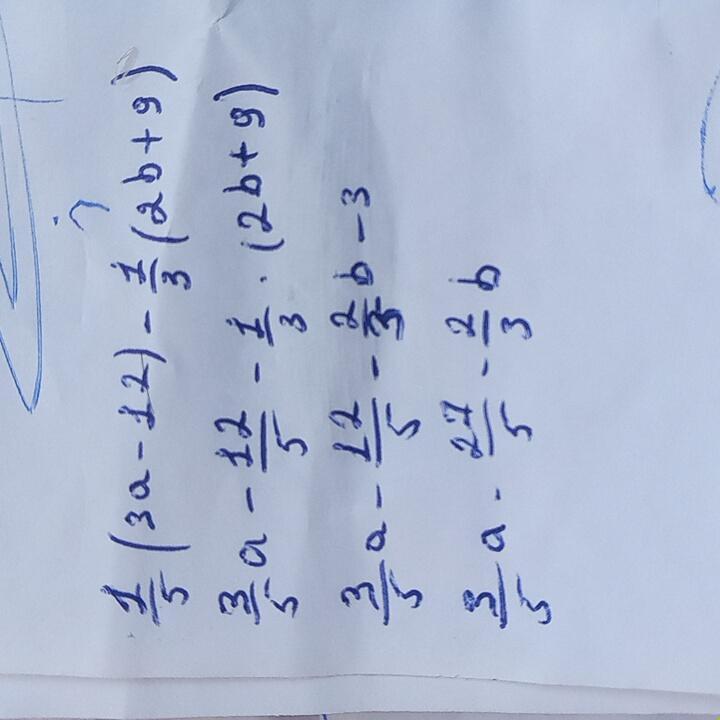 1/5 (3a - 12) - 1/3 (2b + 9)
3/5 a - 12/5 - 1/3 · (2b + 9)
3/5 a - 12/5 - 2/3 b - 3
3/5 a - 27/5 - 2/3 b